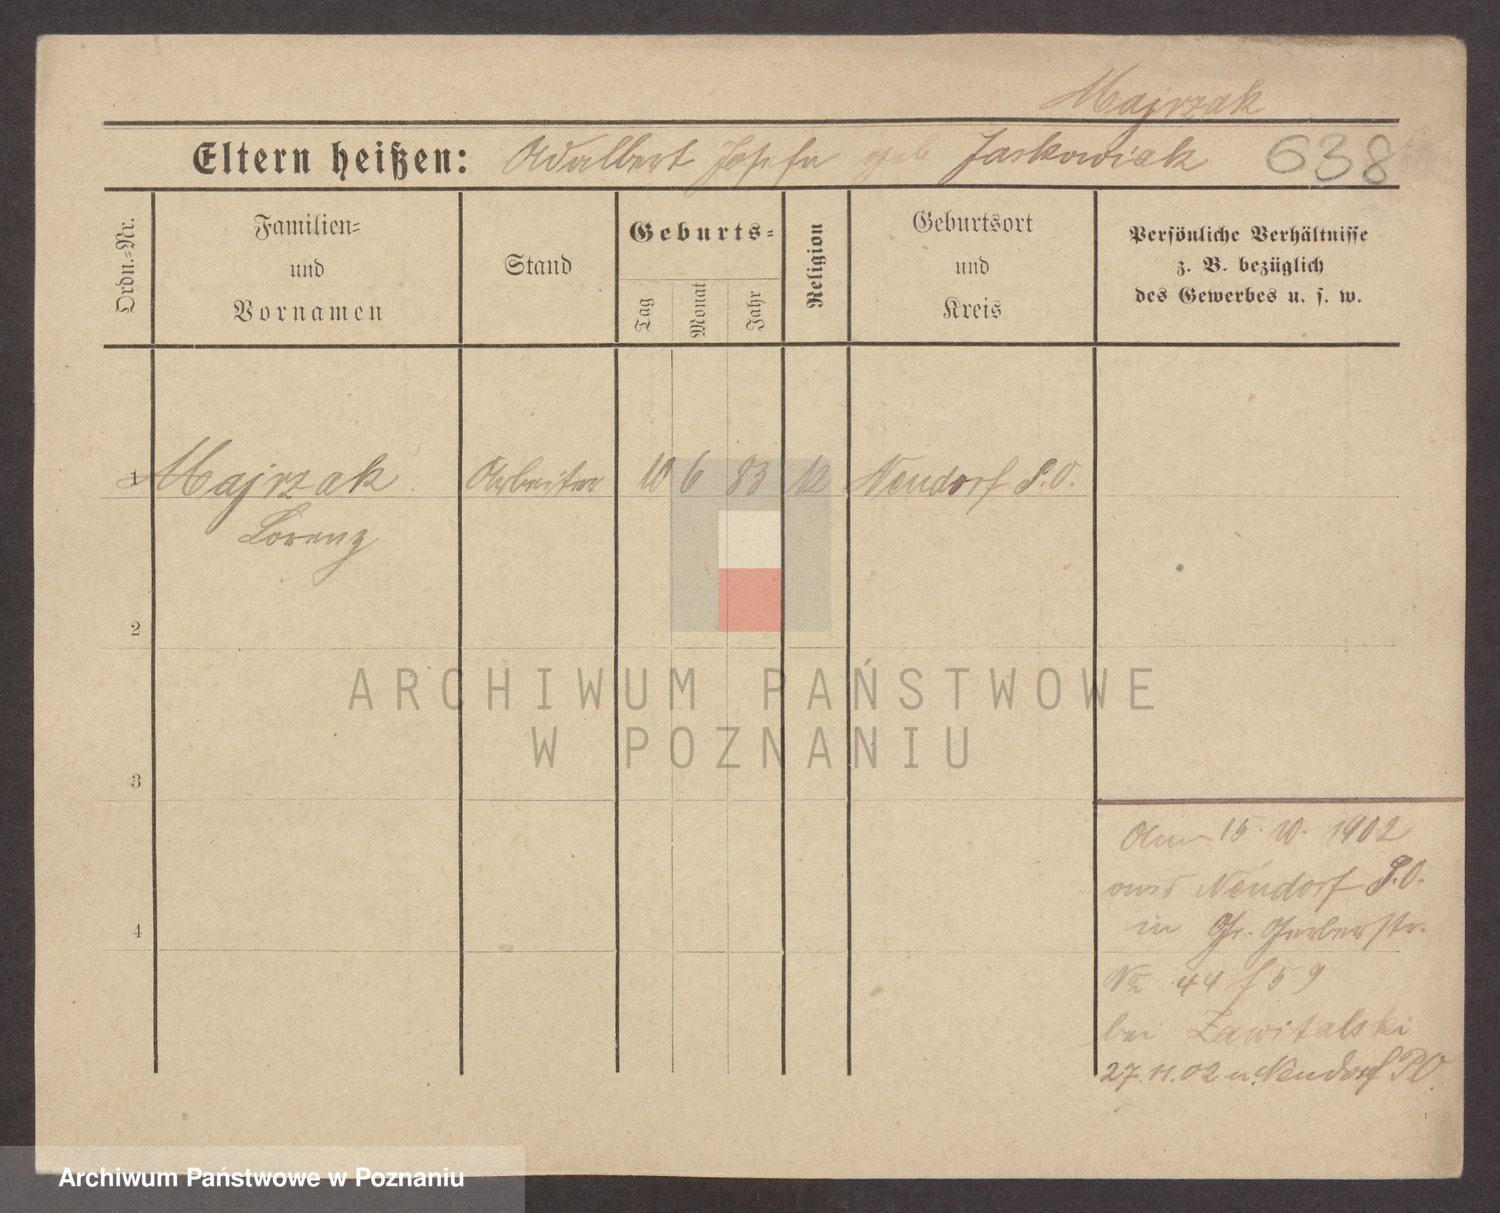 Majrzak
Eltern heißen: Adalbert Josefa geb Jaskowiak 638
Ordn.-Nr.
Familien-
und
Vornamen
Stand
Geburts-
Tag
Monat
Jahr
Religion
Geburtsort
und
Kreis
Persönliche Verhältnisse
z. B. bezüglich
des Gewerbes u. s. w.
1 Majrzak Arbeiter 10 6 83 Neudorf P.O.
Lorenz
2
ARCHIWUM PAŃSTWOWE
W POZNANIU
3
Am 15. 10. 1902
aus Neudorf P.O.
4
in Gr. Gerberstr.
No 44 f 59
bei Zawitalski
27.11.02 n. Neudorf PO.
Archiwum Państwowe w Poznaniu